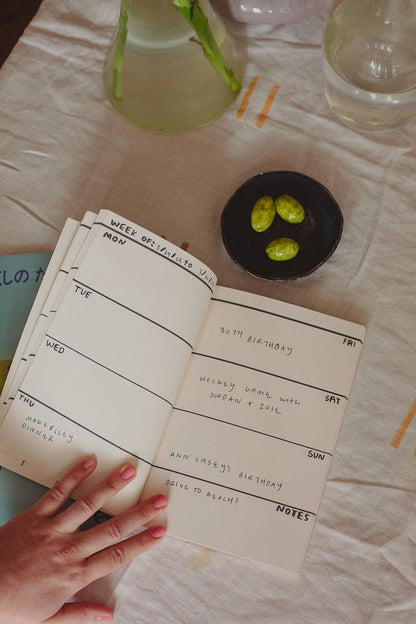 しの
WEEK OF: 3/24/25 to 3/
MON
TUE
WED
THU
MAKE RILEY
DINNER
FRI
30TH BIRTHDAY
SAT
HOCKEY GAME with
JORDAN + ZOIE
SUN
ANN CASEY'S BIRTHDAY
DRIVE TO BEACH?
NOTES